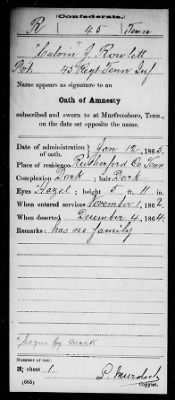 (Confederate.)
R | 45 | Tenn
"Calvin" J Rowlett
Pvt. 45 Regt Tenn Inf
Name appears as signature to an
Oath of Amnesty
subscribed and sworn to at Murfreesboro, Tenn.,
on the date set opposite the name.
Date of administration of oath, Jan 12, 1865.
Place of residence, Rutherford Co. Tenn
Complexion Dark; hair Dark
Eyes Hazel; height 5 ft. 11 in.
When entered service, November 1, 1862.
When deserted, December 4, 1864
Remarks: has no family
"Signs by mark
Number of
sheet 1
(665)
Copyist.